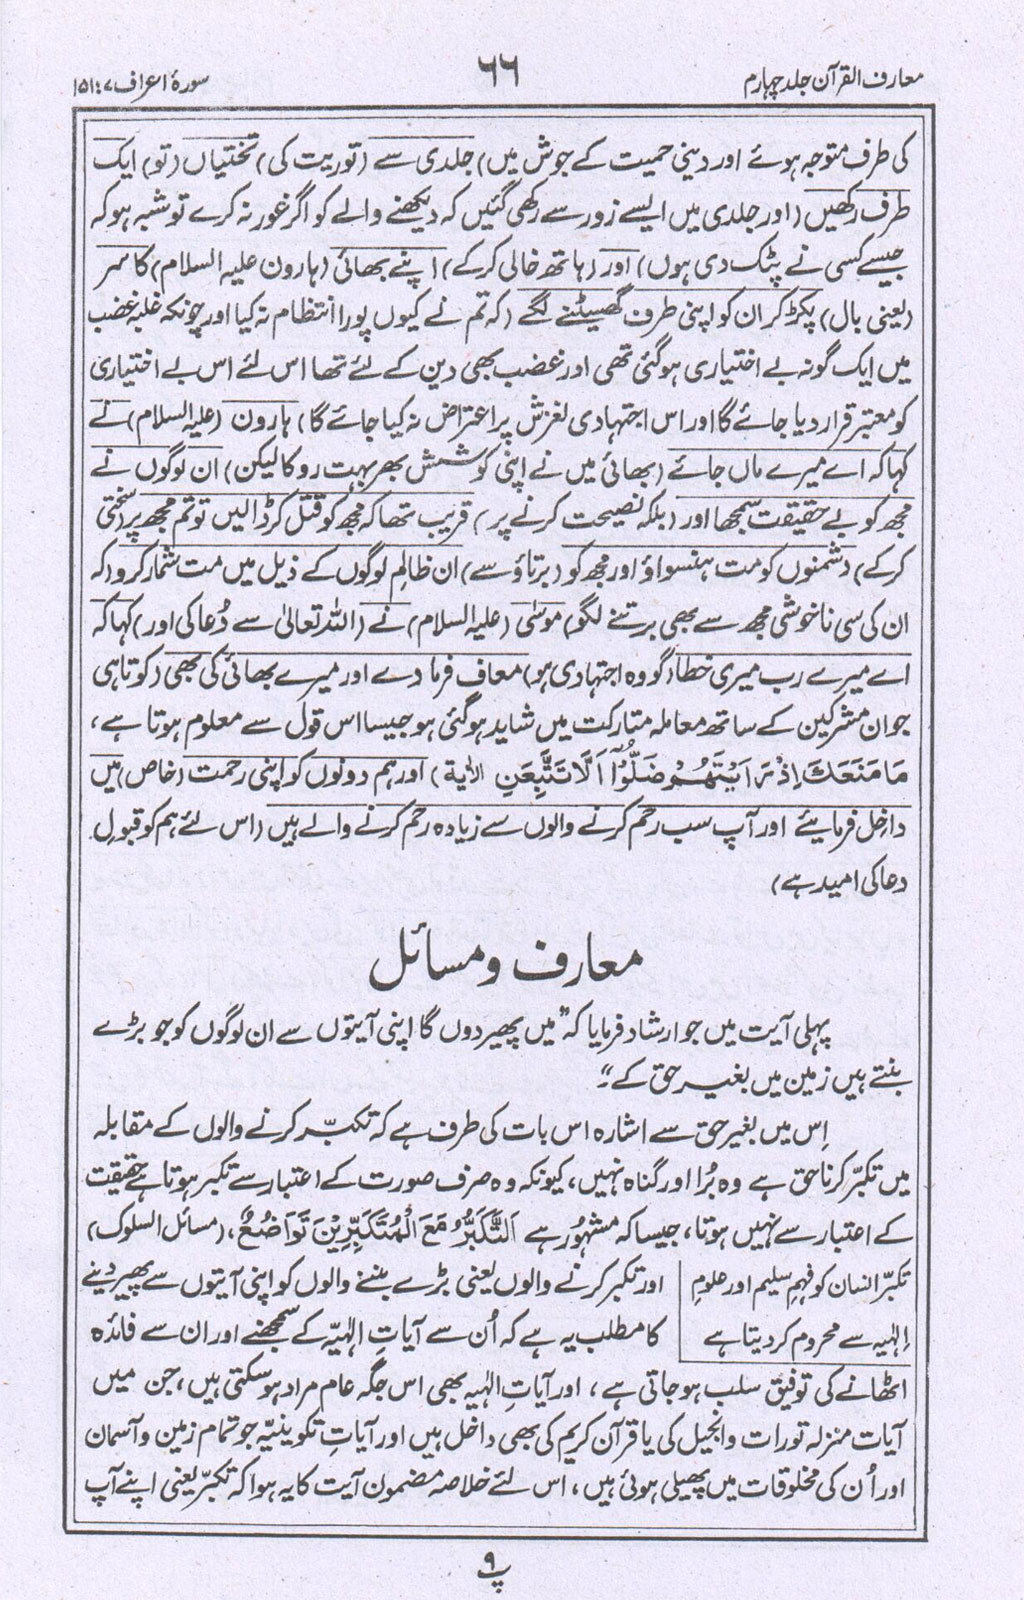 معارف القرآن جلد چہارم
۶۶
سورۂ اعراف ۷: ۱۵۱
کی طرف متوجہ ہوئے اور دینی حمیت کے جوش میں) جلدی سے (توریت کی) تختیاں (تو) ایک
طرف رکھیں (اور جلدی میں ایسے زور سے رکھی گئیں کہ دیکھنے والے کو اگر غور نہ کرے تو شبہ ہو کہ
جیسے کسی نے پٹک دی ہوں) اور (ہاتھ خالی کر کے) اپنے بھائی (ہارون علیہ السلام) کا سر
(یعنی بال) پکڑ کر ان کو اپنی طرف گھسیٹنے لگے (کہ تم نے کیوں پورا انتظام نہ کیا اور چونکہ غلبہ غضب
میں ایک گونہ بے اختیاری ہو گئی تھی اور غضب بھی دین کے لئے تھا اس لئے اس بے اختیاری
کو معتبر قرار دیا جائے گا اور اس اجتہادی لغزش پر اعتراض نہ کیا جائے گا) ہارون (علیہ السلام) نے
کہا کہ اے میرے ماں جائے (بھائی میں نے اپنی کوشش بھر بہت روکا لیکن) ان لوگوں نے
مجھ کو بے حقیقت سمجھا اور (بلکہ نصیحت کرنے پر) قریب تھا کہ مجھ کو قتل کر ڈالیں تو تم مجھ پر (سختی
کر کے) دشمنوں کو مت ہنسواؤ اور مجھ کو (برتاؤ سے) ان ظالم لوگوں کے ذیل میں مت شمار کرو (کہ
ان کی سی ناخوشی مجھ سے بھی برتنے لگو) موسیٰ (علیہ السلام) نے (اللہ تعالیٰ سے دُعا کی اور) کہا کہ
اے میرے رب میری خطا (گو وہ اجتہادی ہو) معاف فرما دے اور میرے بھائی کی بھی (کوتاہی
جو ان مشرکین کے ساتھ معاملہ متارکت میں شاید ہو گئی ہو جیسا اس قول سے معلوم ہوتا ہے،
مَا مَنَعَكَ اِذْ رَاَيْتَهُمْ ضَلُّوْٓا اَلَّا تَتَّبِعَنِ الآیۃ) اور ہم دونوں کو اپنی رحمت (خاص) میں
داخل فرمائیے اور آپ سب رحم کرنے والوں سے زیادہ رحم کرنے والے ہیں (اس لئے ہم کو قبولِ
دعا کی امید ہے)
معارف و مسائل
پہلی آیت میں جو ارشاد فرمایا کہ ”میں پھیر دوں گا اپنی آیتوں سے ان لوگوں کو جو بڑے
بنتے ہیں زمین میں بغیر حق کے“۔
اِس میں بغیر حق سے اشارہ اس بات کی طرف ہے کہ تکبّر کرنے والوں کے مقابلہ
میں تکبّر کرنا حق ہے وہ بُرا اور گناہ نہیں، کیونکہ وہ صرف صورت کے اعتبار سے تکبر ہوتا ہے حقیقت
کے اعتبار سے نہیں ہوتا، جیسا کہ مشہُور ہے اَلتَّكَبُّرُ مَعَ الْمُتَكَبِّرِيْنَ تَوَاضُعٌ، (مسائل السلوک)
تکبّر انسان کو فہمِ سلیم اور علومِ
اِلٰہیہ سے محروم کر دیتا ہے
اور تکبر کرنے والوں یعنی بڑے بننے والوں کو اپنی آیتوں سے پھیر دینے
کا مطلب یہ ہے کہ اُن سے آیاتِ الٰہیّہ کے سمجھنے اور ان سے فائدہ
اٹھانے کی توفیق سلب ہو جاتی ہے، اور آیاتِ الٰہیہ بھی اس جگہ عام مراد ہو سکتی ہیں، جن میں
آیات منزلہ تورات و انجیل کی یا قرآن کریم کی بھی داخل ہیں اور آیاتِ تکوینیّہ جو تمام زمین و آسمان
اور اُن کی مخلوقات میں پھیلی ہوئی ہیں، اس لئے خلاصہ مضمون آیت کا یہ ہوا کہ تکبّر یعنی اپنے آپ
پ ۹